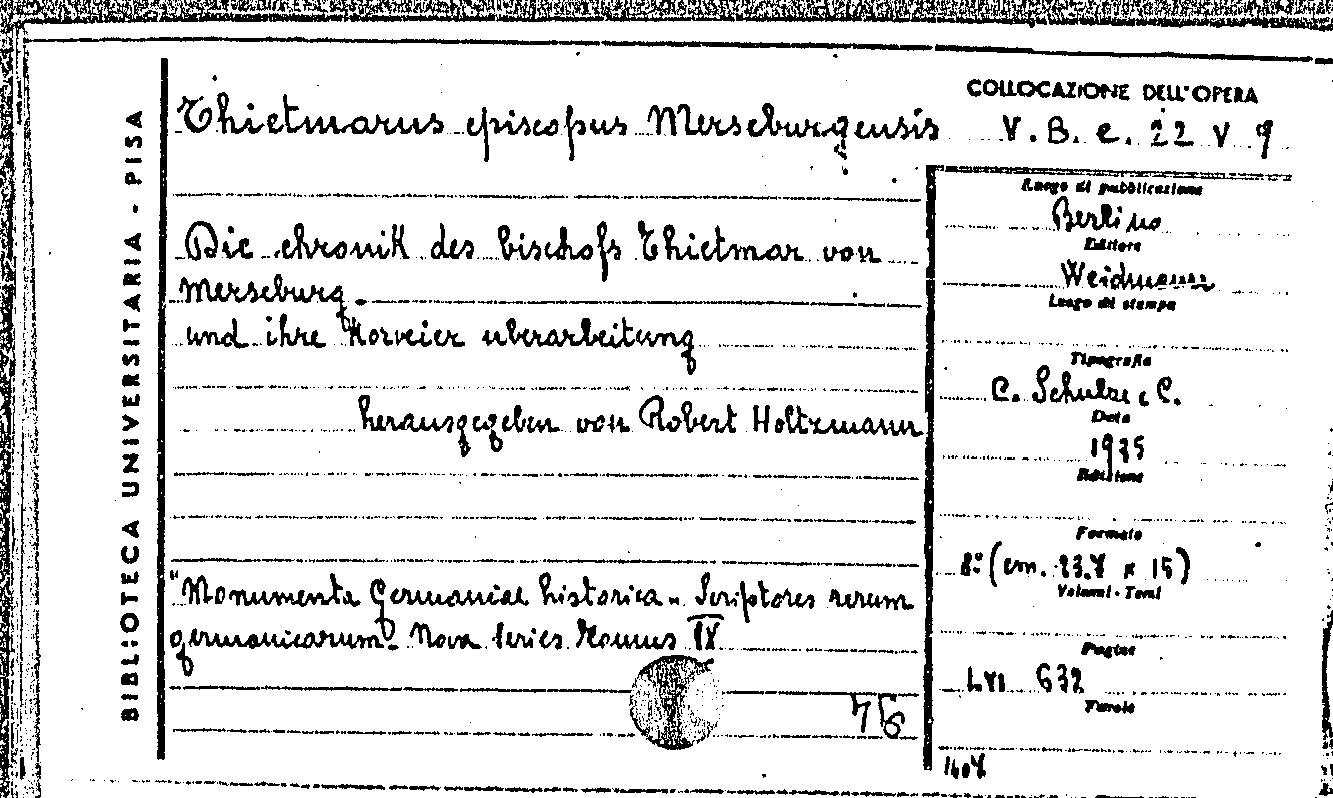 BIBLIOTECA UNIVERSITARIA - PISA
Thietmarus episcopus Merseburgensis
Die chronik des bischofs Thietmar von
Merseburg.
und ihre Korveier uberarbeitung
herausgegeben von Robert Holtzmann
"Monumenta Germaniae historica - Scriptores rerum
germanicarum" Nova series Tomus IX
COLLOCAZIONE DELL'OPERA
V. B. e. 22 V 9
Luogo di pubblicazione
Berlino
Editore
Weidmann
Luogo di stampa
Tipografia
C. Schulze e C.
Data
1935
Edizione
Formato
8° (cm. 23.7 x 15)
Volumi - Tomi
Pagine
LVI 632
Tavole